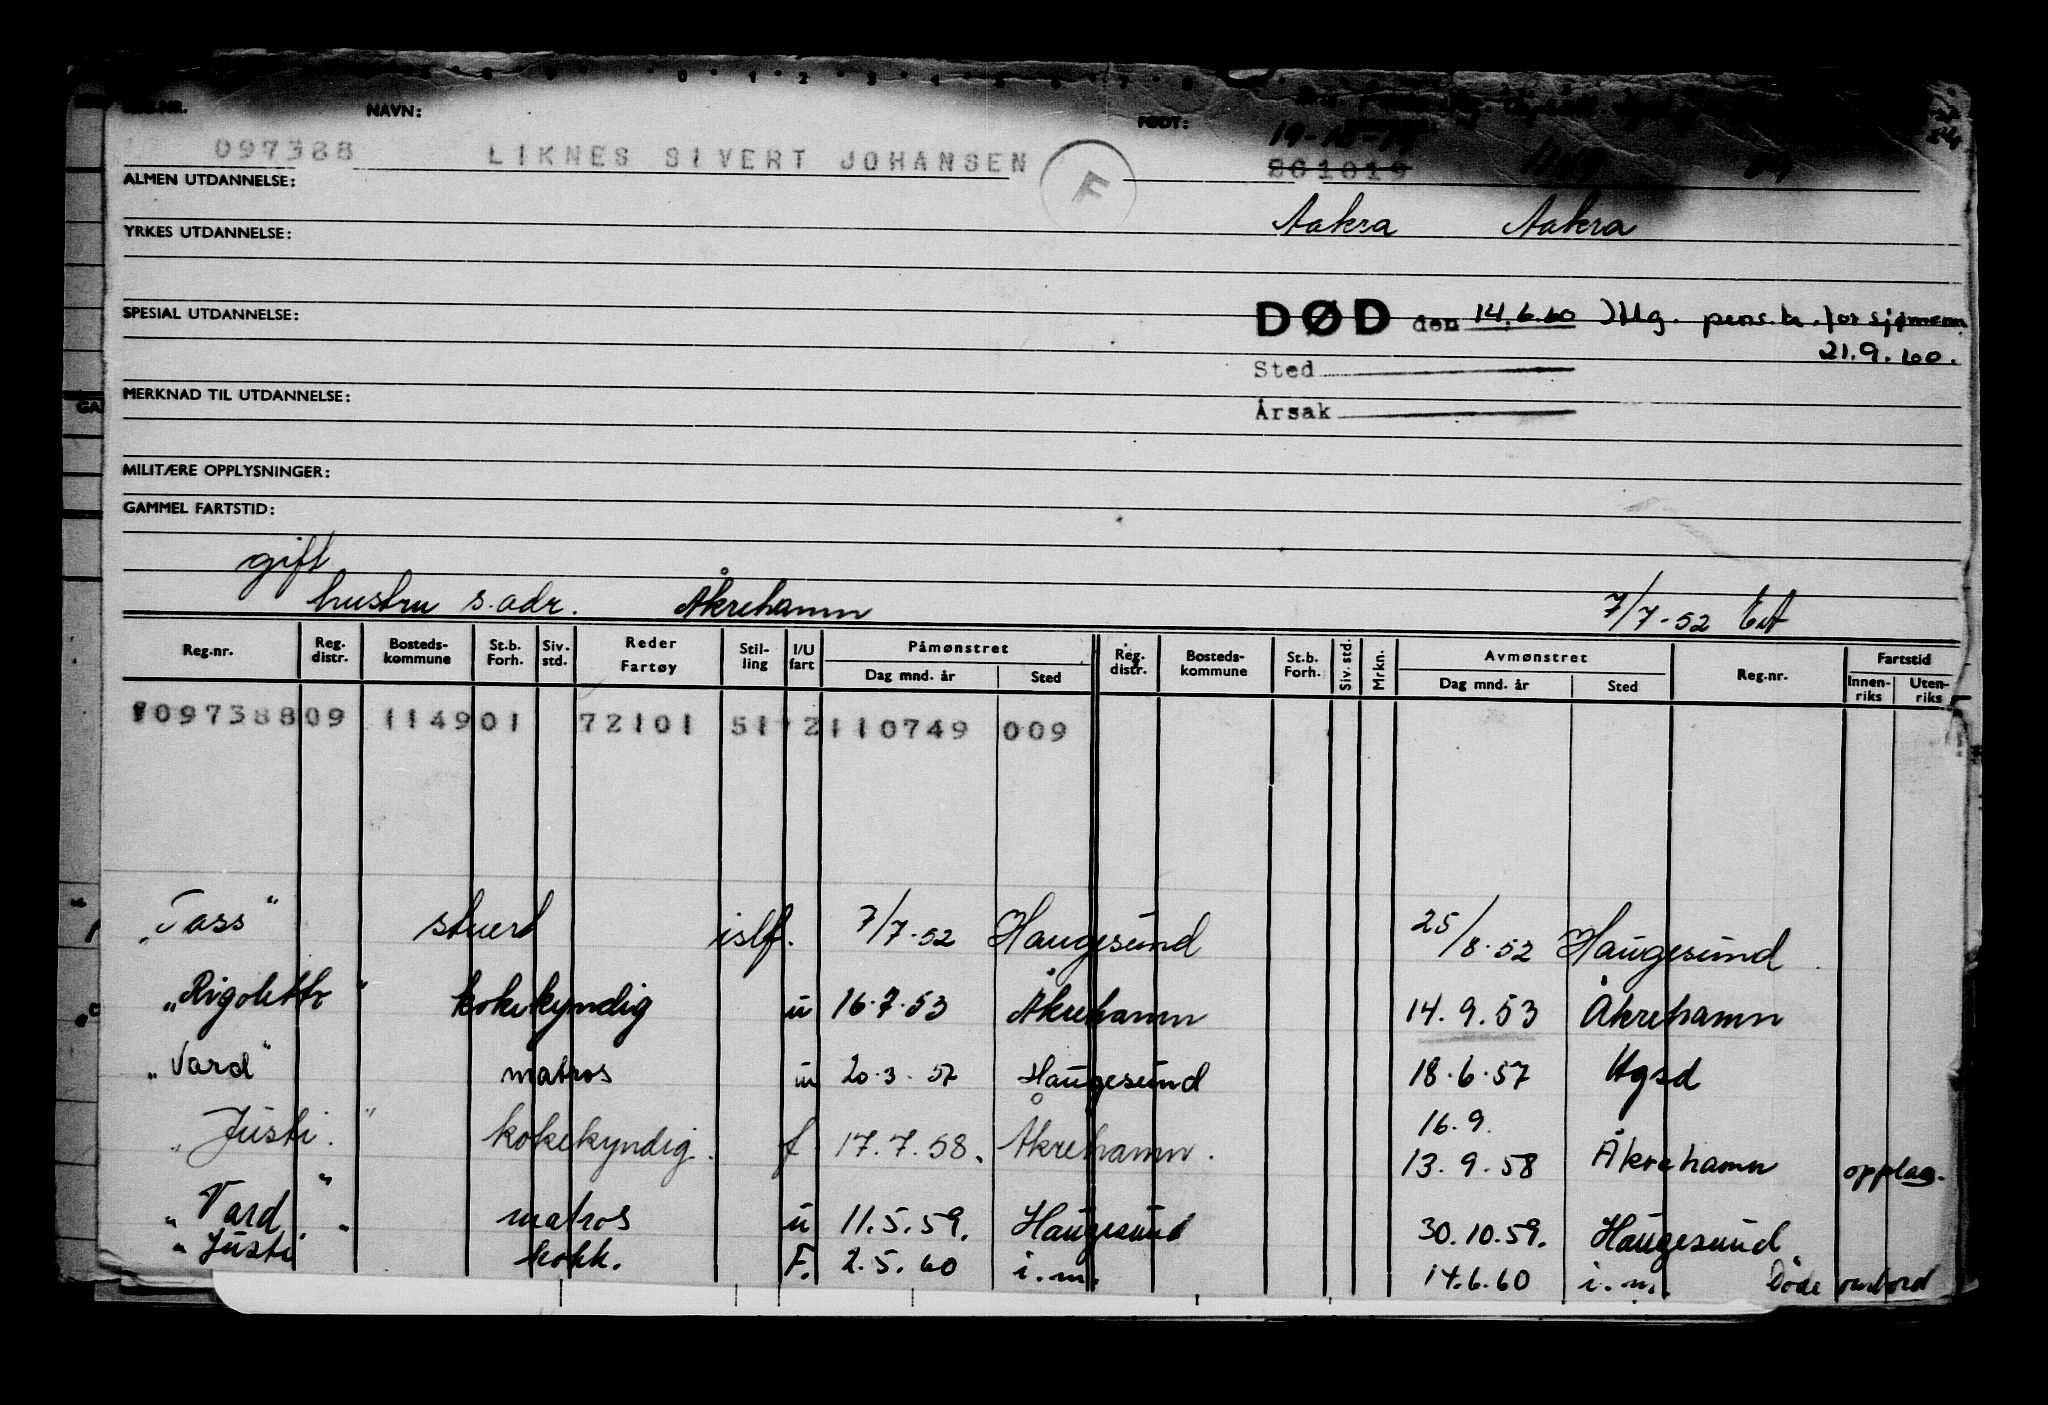 NAVN: FØDT:
19-10-19
097388 LIKNES SIVERT JOHANSEN F 261019 1149 09
ALMEN UTDANNELSE:
Aakra Aakra
YRKES UTDANNELSE:
SPESIAL UTDANNELSE: DØD den 14.6.60 pens.tr. for sjømenn
21.9.60.
Sted
MERKNAD TIL UTDANNELSE: Årsak
MILITÆRE OPPLYSNINGER:
GAMMEL FARTSTID:
gift
hustru s. adr. Åkrehamn 7/7-52
Reg.nr. Reg. distr. Bosteds-kommune St.b. Forh. Siv. std. Reder Fartøy Stil-ling I/U fart Påmønstret Dag mnd. år Sted Reg. distr. Bosteds-kommune St.b. Forh. Siv. std. Mrkn. Avmønstret Dag mnd. år Sted Reg.nr. Fartstid Innen-riks Uten-riks
09738809 114901 72101 51 2110749 009
"Tass" stuert islf. 7/7-52 Haugesund 25/8-52 Haugesund
"Rigoletto" kokekyndig u 16.7.53 Åkrehamn 14.9.53 Åkrehamn
"Vard" matros u 20.3.57 Haugesund 18.6.57 Hgsd
16.9.
"Justi." kokekyndig. f 17.7.58. Åkrehamn. 13.9.58 Åkrehamn opplag.
"Vard" matros u 11.5.59. Haugesund 30.10.59. Haugesund.
"Justi" kokk. F. 2.5.60 i.m. 14.6.60 i.m. Døde ombord